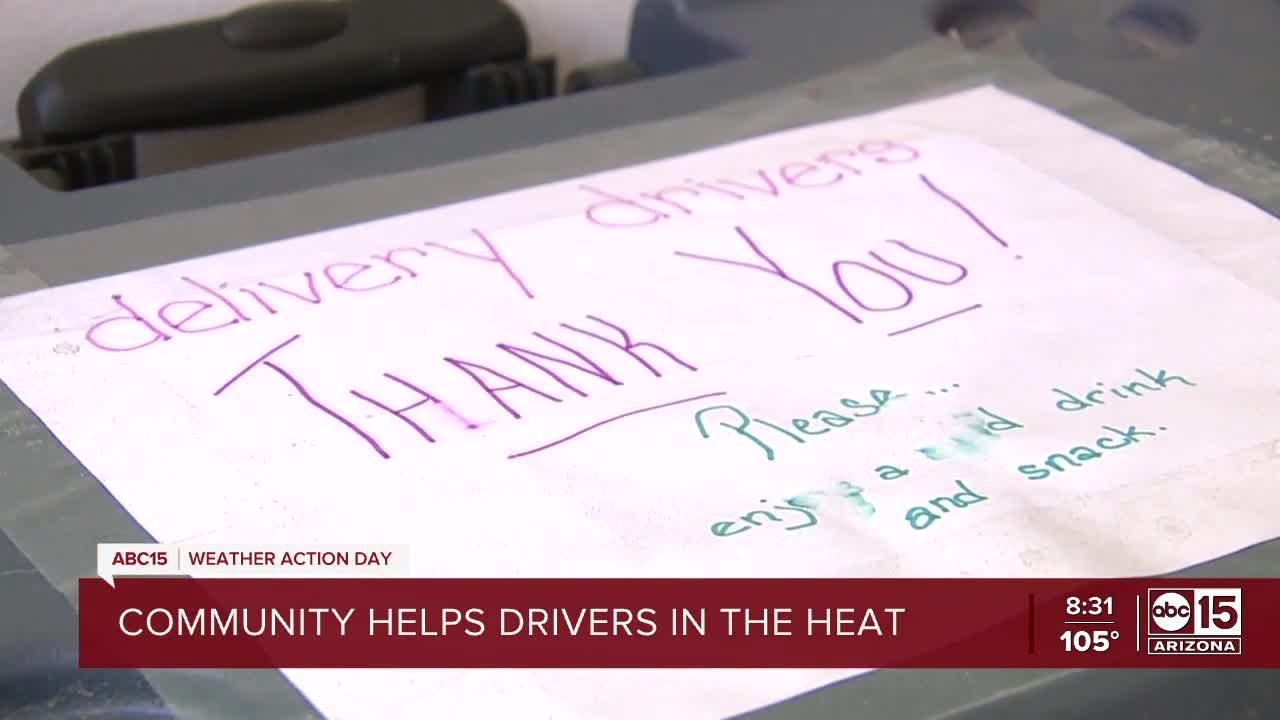 delivery drivers
THANK YOU!
Please...
enjoy a drink
and snack.
ABC15 WEATHER ACTION DAY
COMMUNITY HELPS DRIVERS IN THE HEAT
8:31
105°
abc 15
ARIZONA